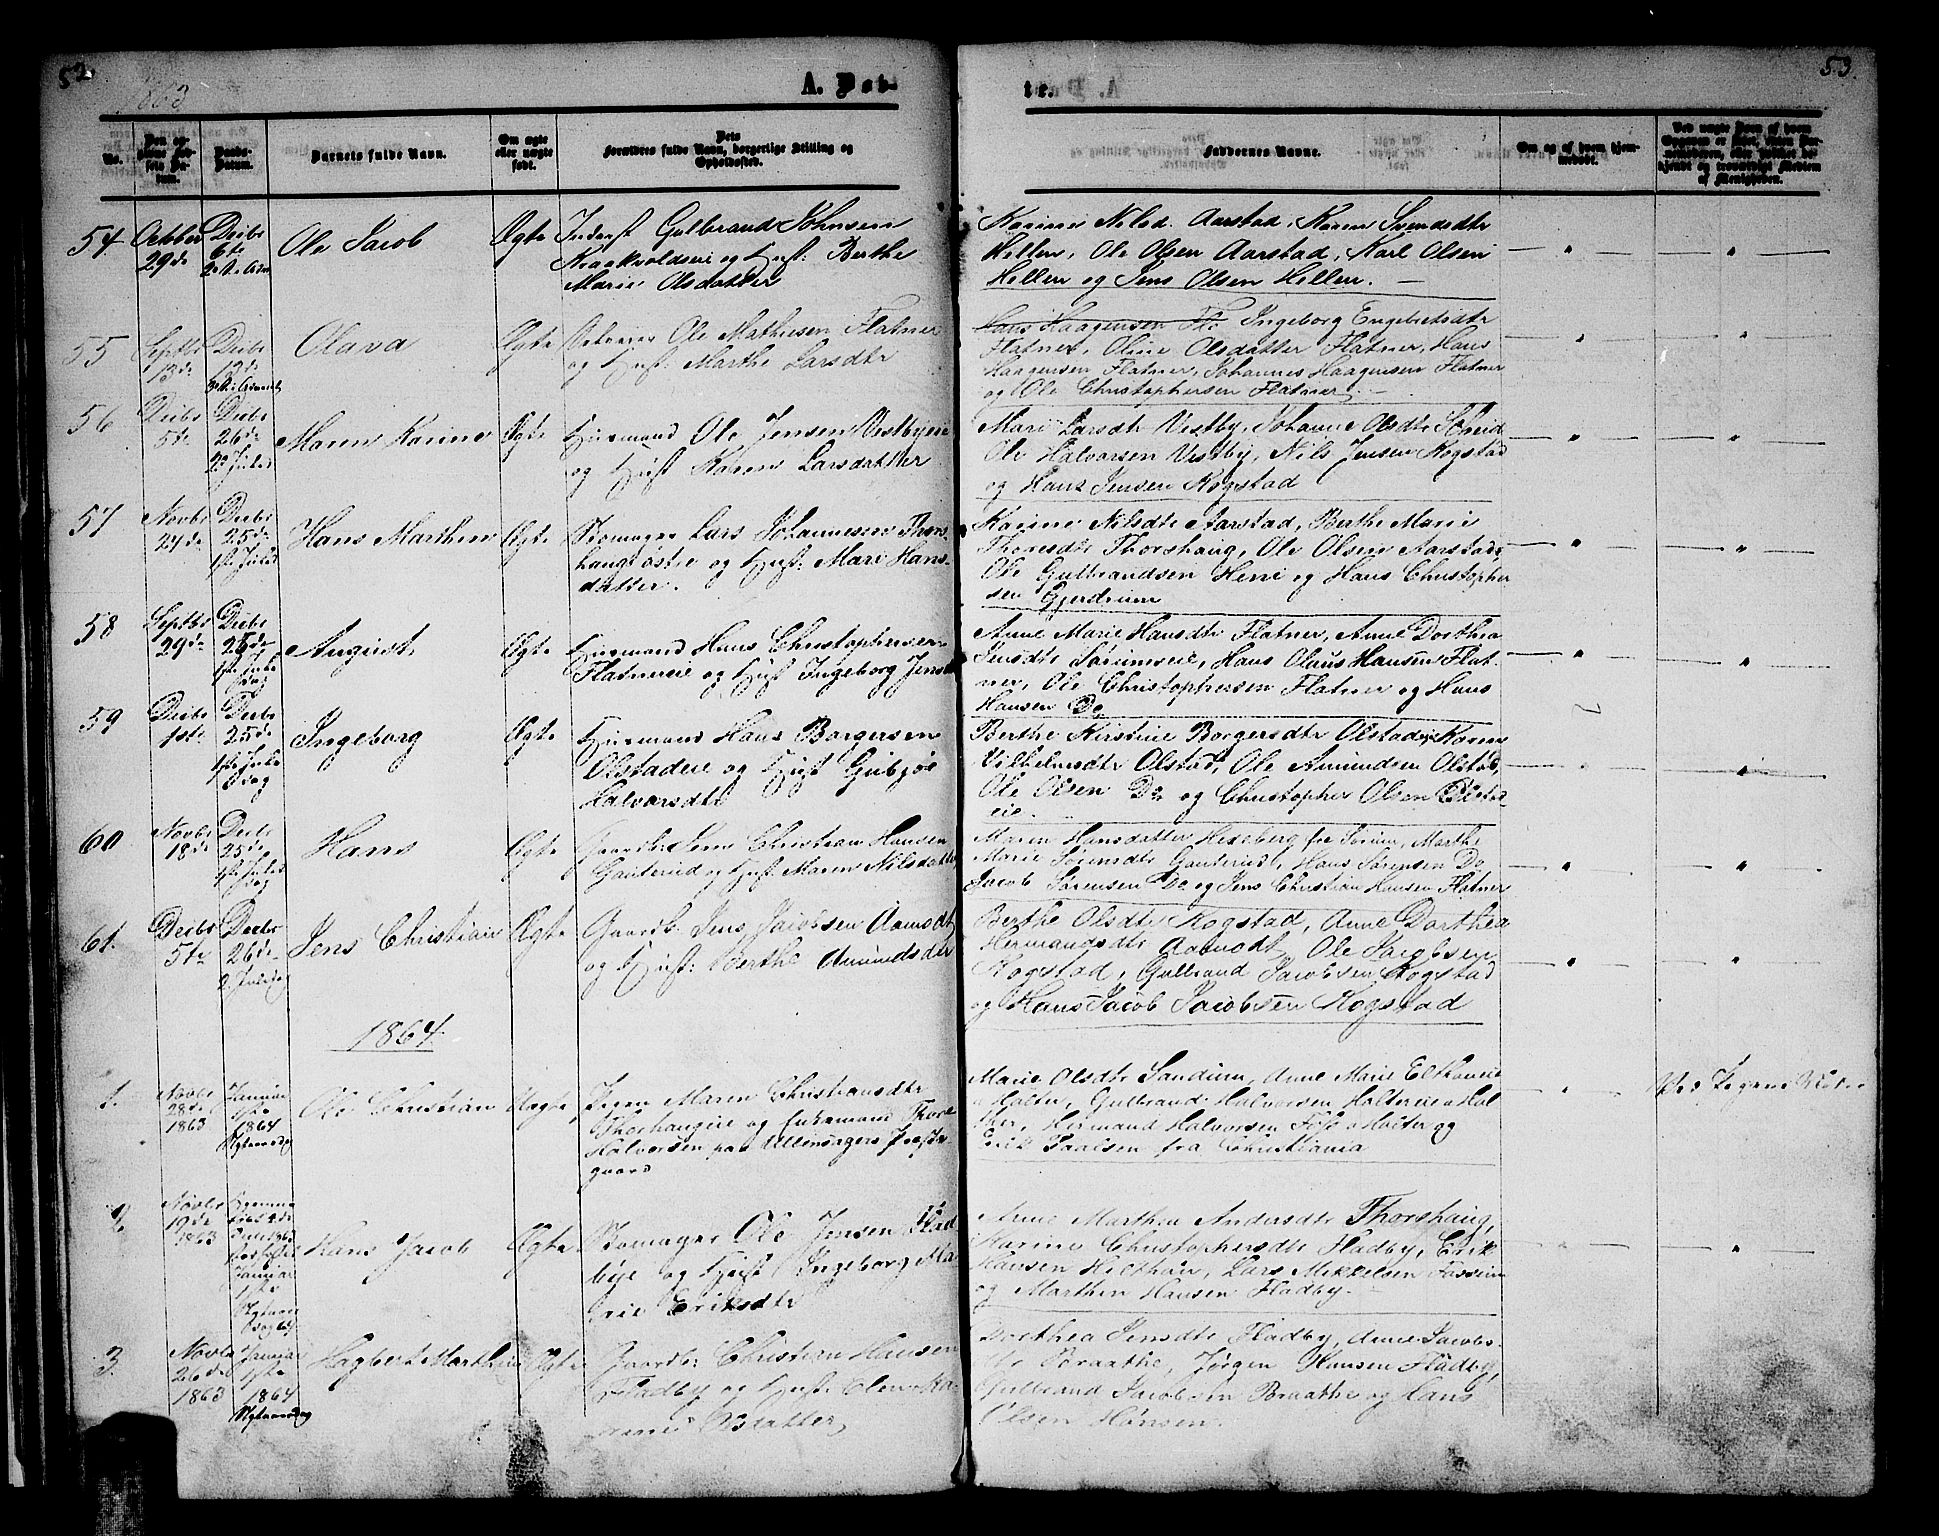 52.
1863
A. Døb-
No.
Barnets fulde Navn.
Om ægte
eller uægte
født.
Forældres fulde Navn, borgerlige Stilling og
Opholdssted.
54.
Octber
29de
Decbr
6te
Ole Jacob
Ægte
Inderst Gulbrand Johnsen
og Hust: Berthe
Marie Olsdatter
55
Septbr
13de
Decbr
13de
Olava
Ægte
Ole Mathisen Flatner
og Hust: Marthe Larsdtr
56
Decbr
5te
Decbr
26de
Maren Karine
Ægte
Huusmand Ole Jensen Vestbyeie
og Hust Karen Larsdatter
57
Novbr
24de
Decbr
25de
1ste Juled
Hans Marthin
Ægte
Skomager Lars Johannesen Thors-
haug østre og Hust: Mari Hans-
datter.
58
Septbr
29de
Decbr
25de
1ste Jule
dag
August
Ægte
Huusmand Hans Christophersen
Flatnereie og Hust Ingeborg Jensd
59
Decbr
1ste
Decbr
25de
1ste Jule
dag
Ingeborg
Ægte
Huusmand Hans Borgersen
Olstadeie og Hust Gubjør
Halvorsdtr
60
Novbr
18de
Decbr
25de
1ste Jules
dag
Hans
Ægte
Gaardb: Jens Christian Hansen
Gauterud og Hust: Maren Nilsdatter
61.
Decbr
5te
Decbr
26de
2 Juledag
Jens Christian
Ægte
Gaardb: Jens Jacobsen Aamodt
og Hust: Berthe Amundsdtr
1864.
1.
Novbr
28de
1863
Januar
1ste
1864
Nytaarsdag
Ole Christian
Uægte
Pigen Maren Christiansdtr
Thorshaugeie og Enkemand Thore
Halvorsen paa Ullensagers Præste-
gaard
2.
Novbr
19de
1863
Januar
1ste
Nytaars
dag 64
Hans Jacob
Ægte
Skomager Ole Jensen Flad-
byeie og Hust Ingeborg Ma-
rie Eriksdtr
3.
Novbr
26de
1863
Januar
1ste
1864
Nytaarsdag
Hagbert Marthin
Ægte
Gaardb: Christian Hansen
Fladby og Hust: Olene Ka-
rine Olsdatter
53.
te.
Faddernes Navne.
Om og af hvem hjem-
medøbt.
Karine Nilsd. Aarstad, Karen Svendsdtr
Hellen, Ole Olsen Aarstad, Karl Olsen
Hellen og Jens Olsen Hellen. —
Hans Haagensen Flo Ingeborg Engebretsdtr
Flatner, Oline Olsdatter Flatner, Hans
Haagensen Flatner, Johannes Haagensen Flatner
og Ole Christophersen Flatner. —
Mari Larsdtr Vestby, Johanne Olsdtr
Ole Halvorsen Vestby, Nils Jensen Kogstad
og Hans Jensen Kogstad
Karine Nilsdtr Aarstad, Berthe Marie
Thoresdtr Thorshaug, Ole Olsen Aarstad,
Ole Gulbrandsen Heni og Hans Christopher
sen Gjerdrum
Anne Marie Hansdtr Flatner, Anne Dorthea
Jensdtr Sørumseie, Hans Olaus Hansen Flat-
ner, Ole Christophersen Flatner og Hans
Hansen Do
Berthe Kirstine Borgersdtr Olstadeie Karen
Vilhelmsdtr Olstad, Ole Amundsen Olstad,
Ole Olsen Do og Christopher Olsen Olstad-
eie.
Maren Hansdatter Hexeberg fra Sørum, Marthe
Marie Sørensdtr Gauterud, Hans Sørensen Do
Jacob Sørensen Do og Jens Christian Hansen Flatner
Berthe Olsdtr Kogstad, Anne Dorthea
Hermandsdtr Aamodt, Ole Jacobsen
Kogstad, Gulbrand Jacobsen Kogstad
og Hans Jacob Jacobsen Kogstad
Marie Olsdtr Sandum, Anne Marie
Holter, Gulbrand Halvorsen Haltereie Hol
ther, Hermand Halvorsen Foss Holter og
Erik Paalsen fra Christiania
Anne Marthea Andersdtr Thorshaug,
Karine Christophersdtr Fladby, Erik
Hansen Hilthon, Lars Mikkelsen Fossum
og Marthin Hansen Fladby. —
Dorthea Jensdtr Fladby, Anne Jacobs-
dtr Braathe, Jørgen Hansen Fladby,
Gulbrand Jacobsen Braathe og Hans
Olsen Hønsen.
Ved Pigens Moder